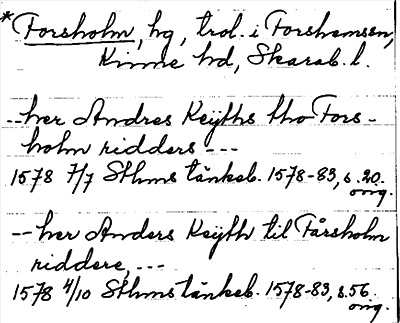 *Forsholm, hg, trol. i Forshemssn,
Kinne hd, Skarab. l.
--her Andres Keÿths tho Fors-
holm ridders ---
1578 7/7 Sthms tänkeb. 1578-83, s. 20.
orig.
--her Anders Keÿth til Fårsholm
riddere, ---
1578 4/10 Sthms tänkeb. 1578-83, s. 56.
orig.